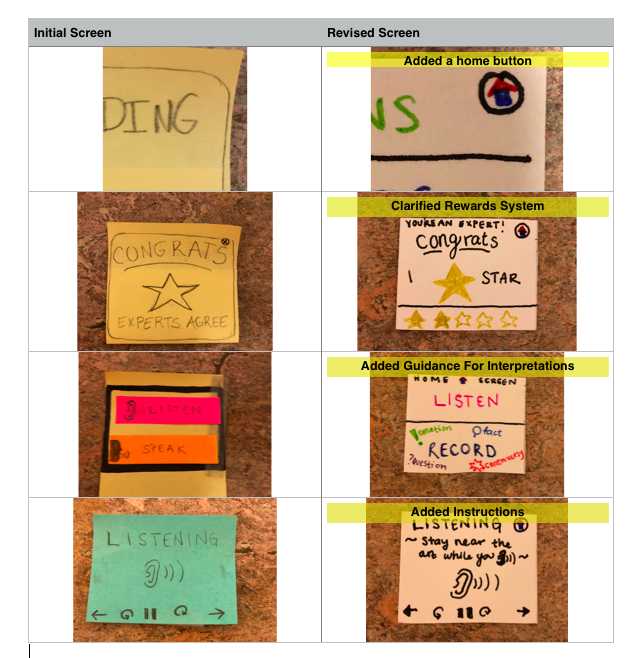 Initial Screen
Revised Screen
DING
Added a home button
NS
CONGRATS
EXPERTS AGREE
Clarified Rewards System
YOU'RE AN EXPERT!
Congrats
1 STAR
LISTEN
SPEAK
Added Guidance For Interpretations
HOME SCREEN
LISTEN
!emotion
fact
RECORD
?question
controversy
LISTENING
Added Instructions
LISTENING
~ Stay near the
art while you ~